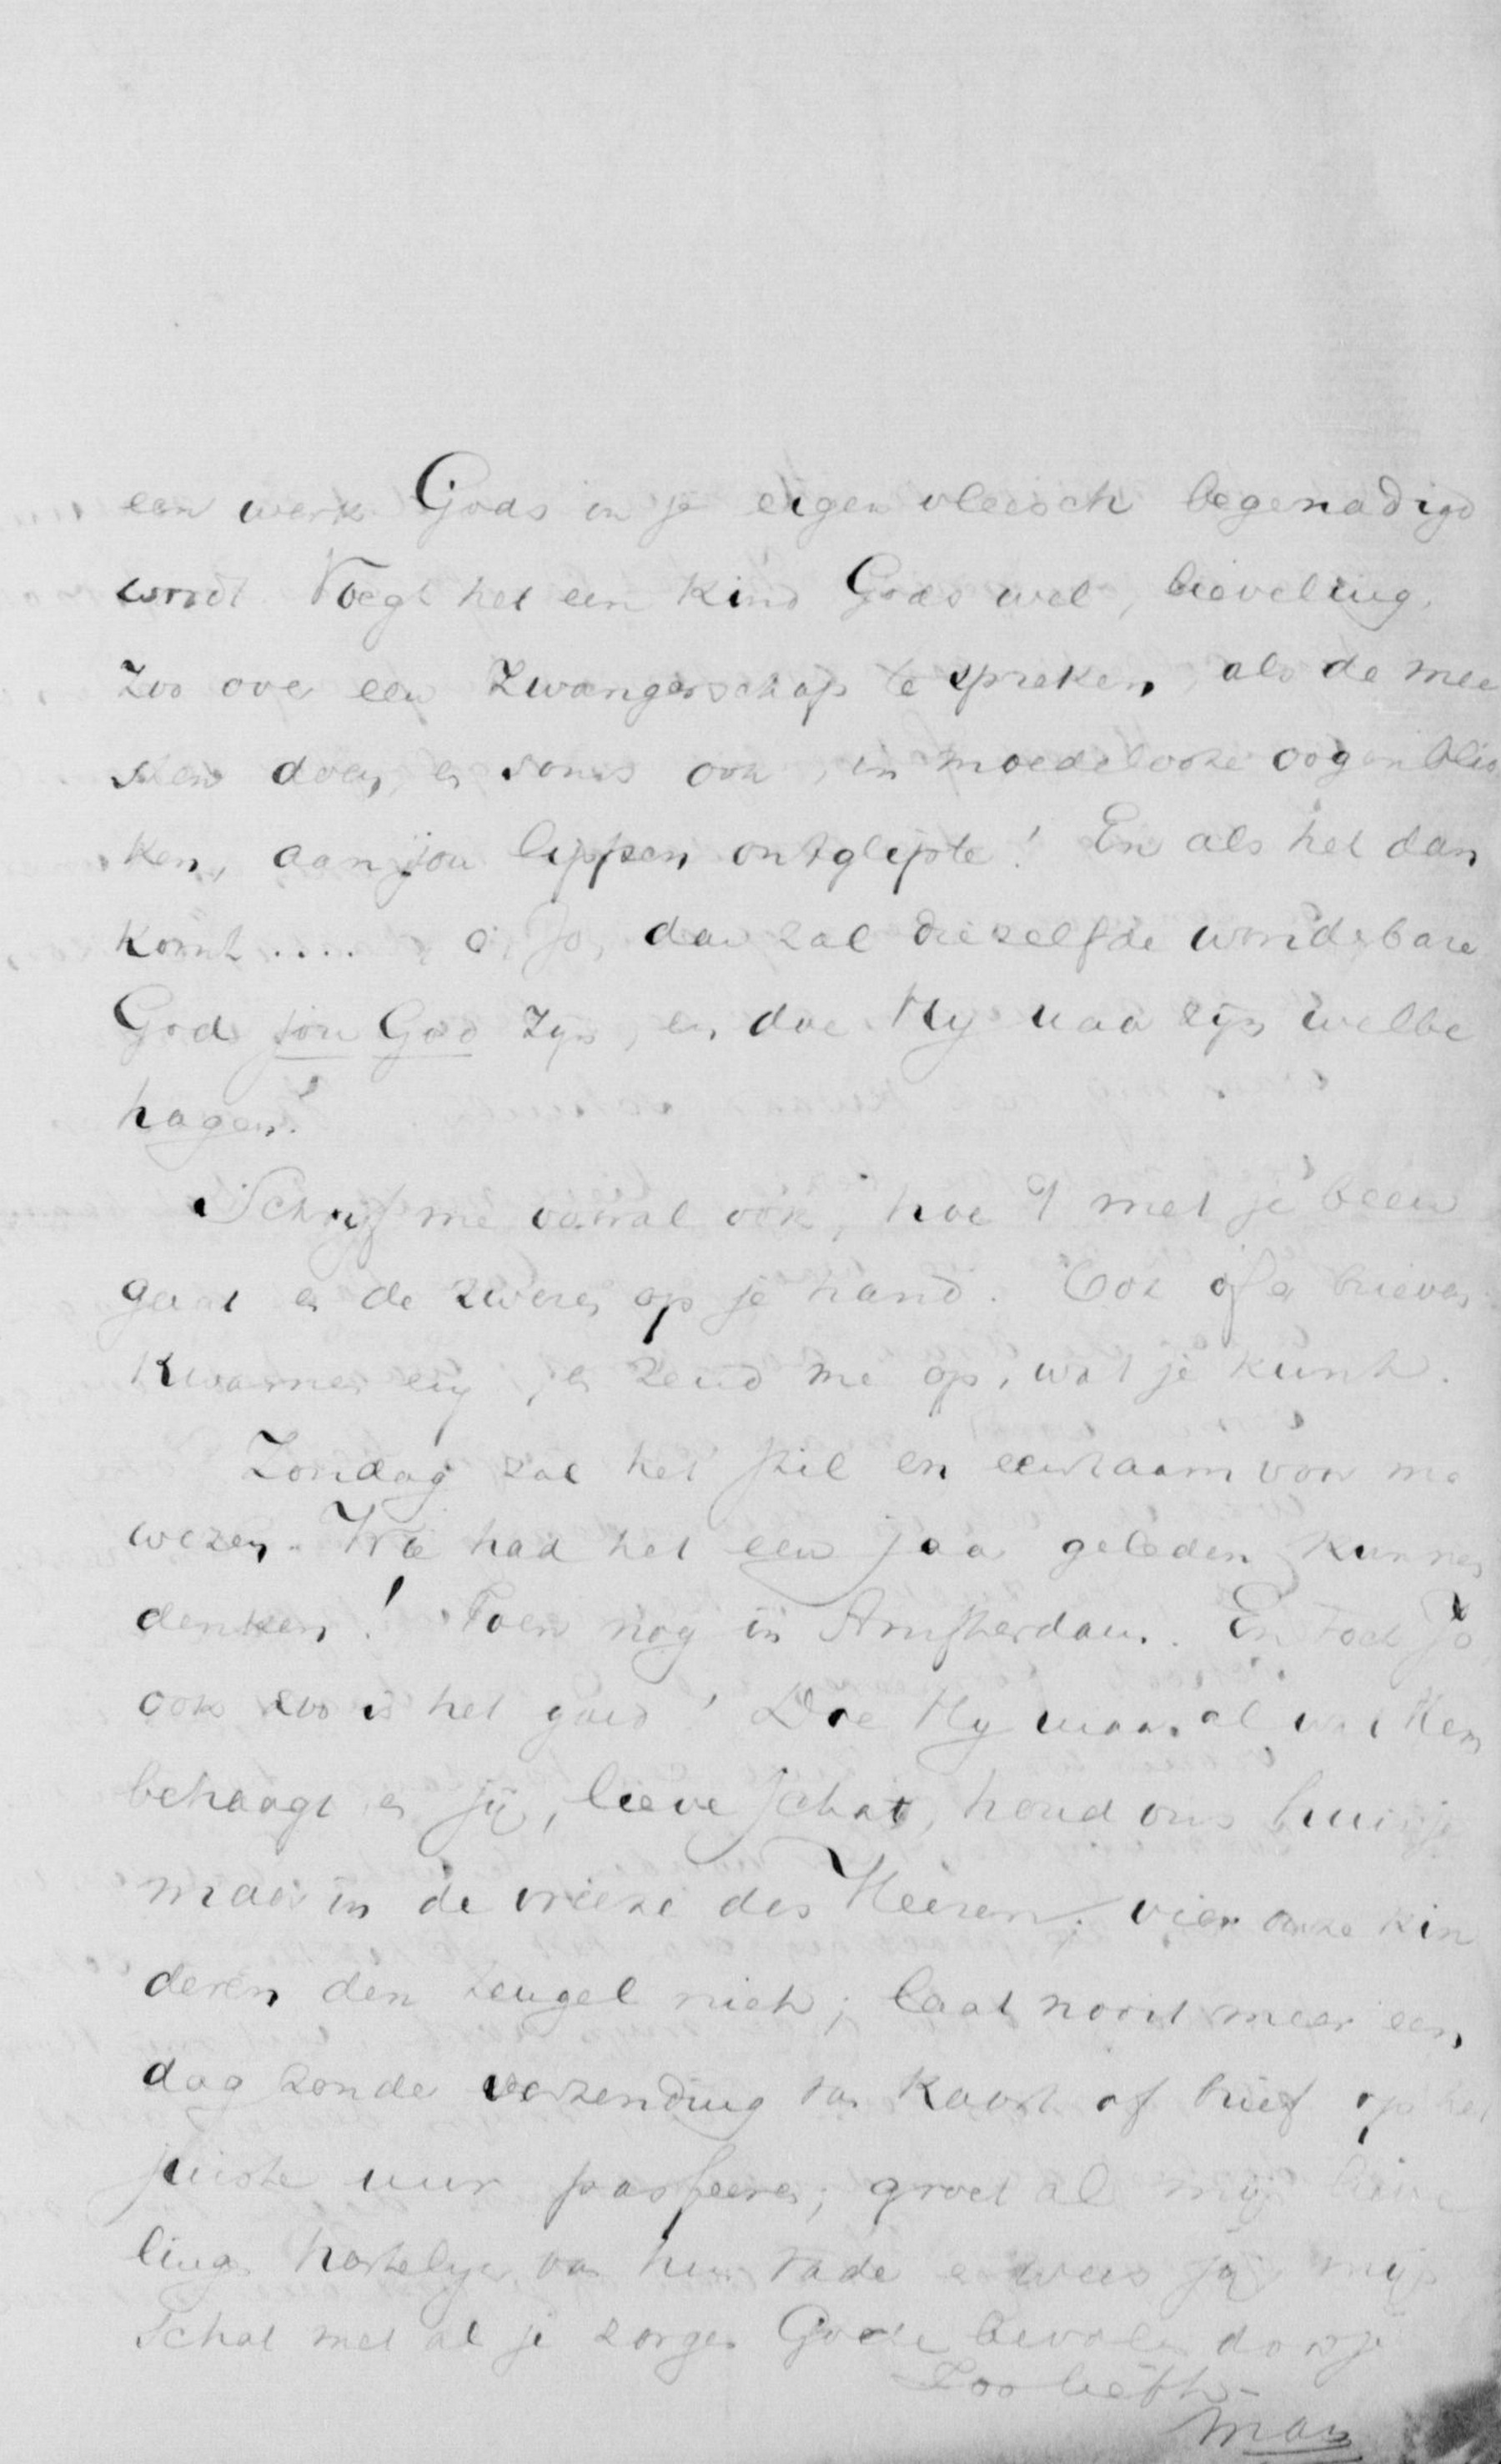 een werk Gods in je eigen vleesch begenadigd
wordt. Voegt het een kind Gods wel, lieveling,
zoo over een zwangerschap te spreken, als de mee
sten doen, en soms ook, in moedelooze oogenblik
ken, aan jou lippen ontglipte! En als het dan
komt .... o, Jo, dan zal diezelfde wonderbare
God jou God zijn, en doe Hy naar zijn welbe
hagen!
Schrijf me vooral ook, hoe 't met je been
gaat en de zweren op je hand. Ook of er brieven
kwamen en zend me op, wat je kunt.
Zondag zal het stil en eenzaam voor me
wezen. Wie had het een jaar geleden kunnen
denken! Toen nog in Amsterdam. En toch Jo
ook zoo is het goed! Doe Hy maar al wat Hem
behaagt en jij, lieve schat, houd ons huisje
maar in de vreeze des Heeren; vier onze kin
deren den teugel niet; laat nooit meer een
dag zonder verzending van kaart of brief op het
juiste uur passeeren; groet al mijn lieve
lingen hartelijk van hun vader en wees jij mijn
schat met al je zorgen Gode bevolen door je
Zoo liefh-
man